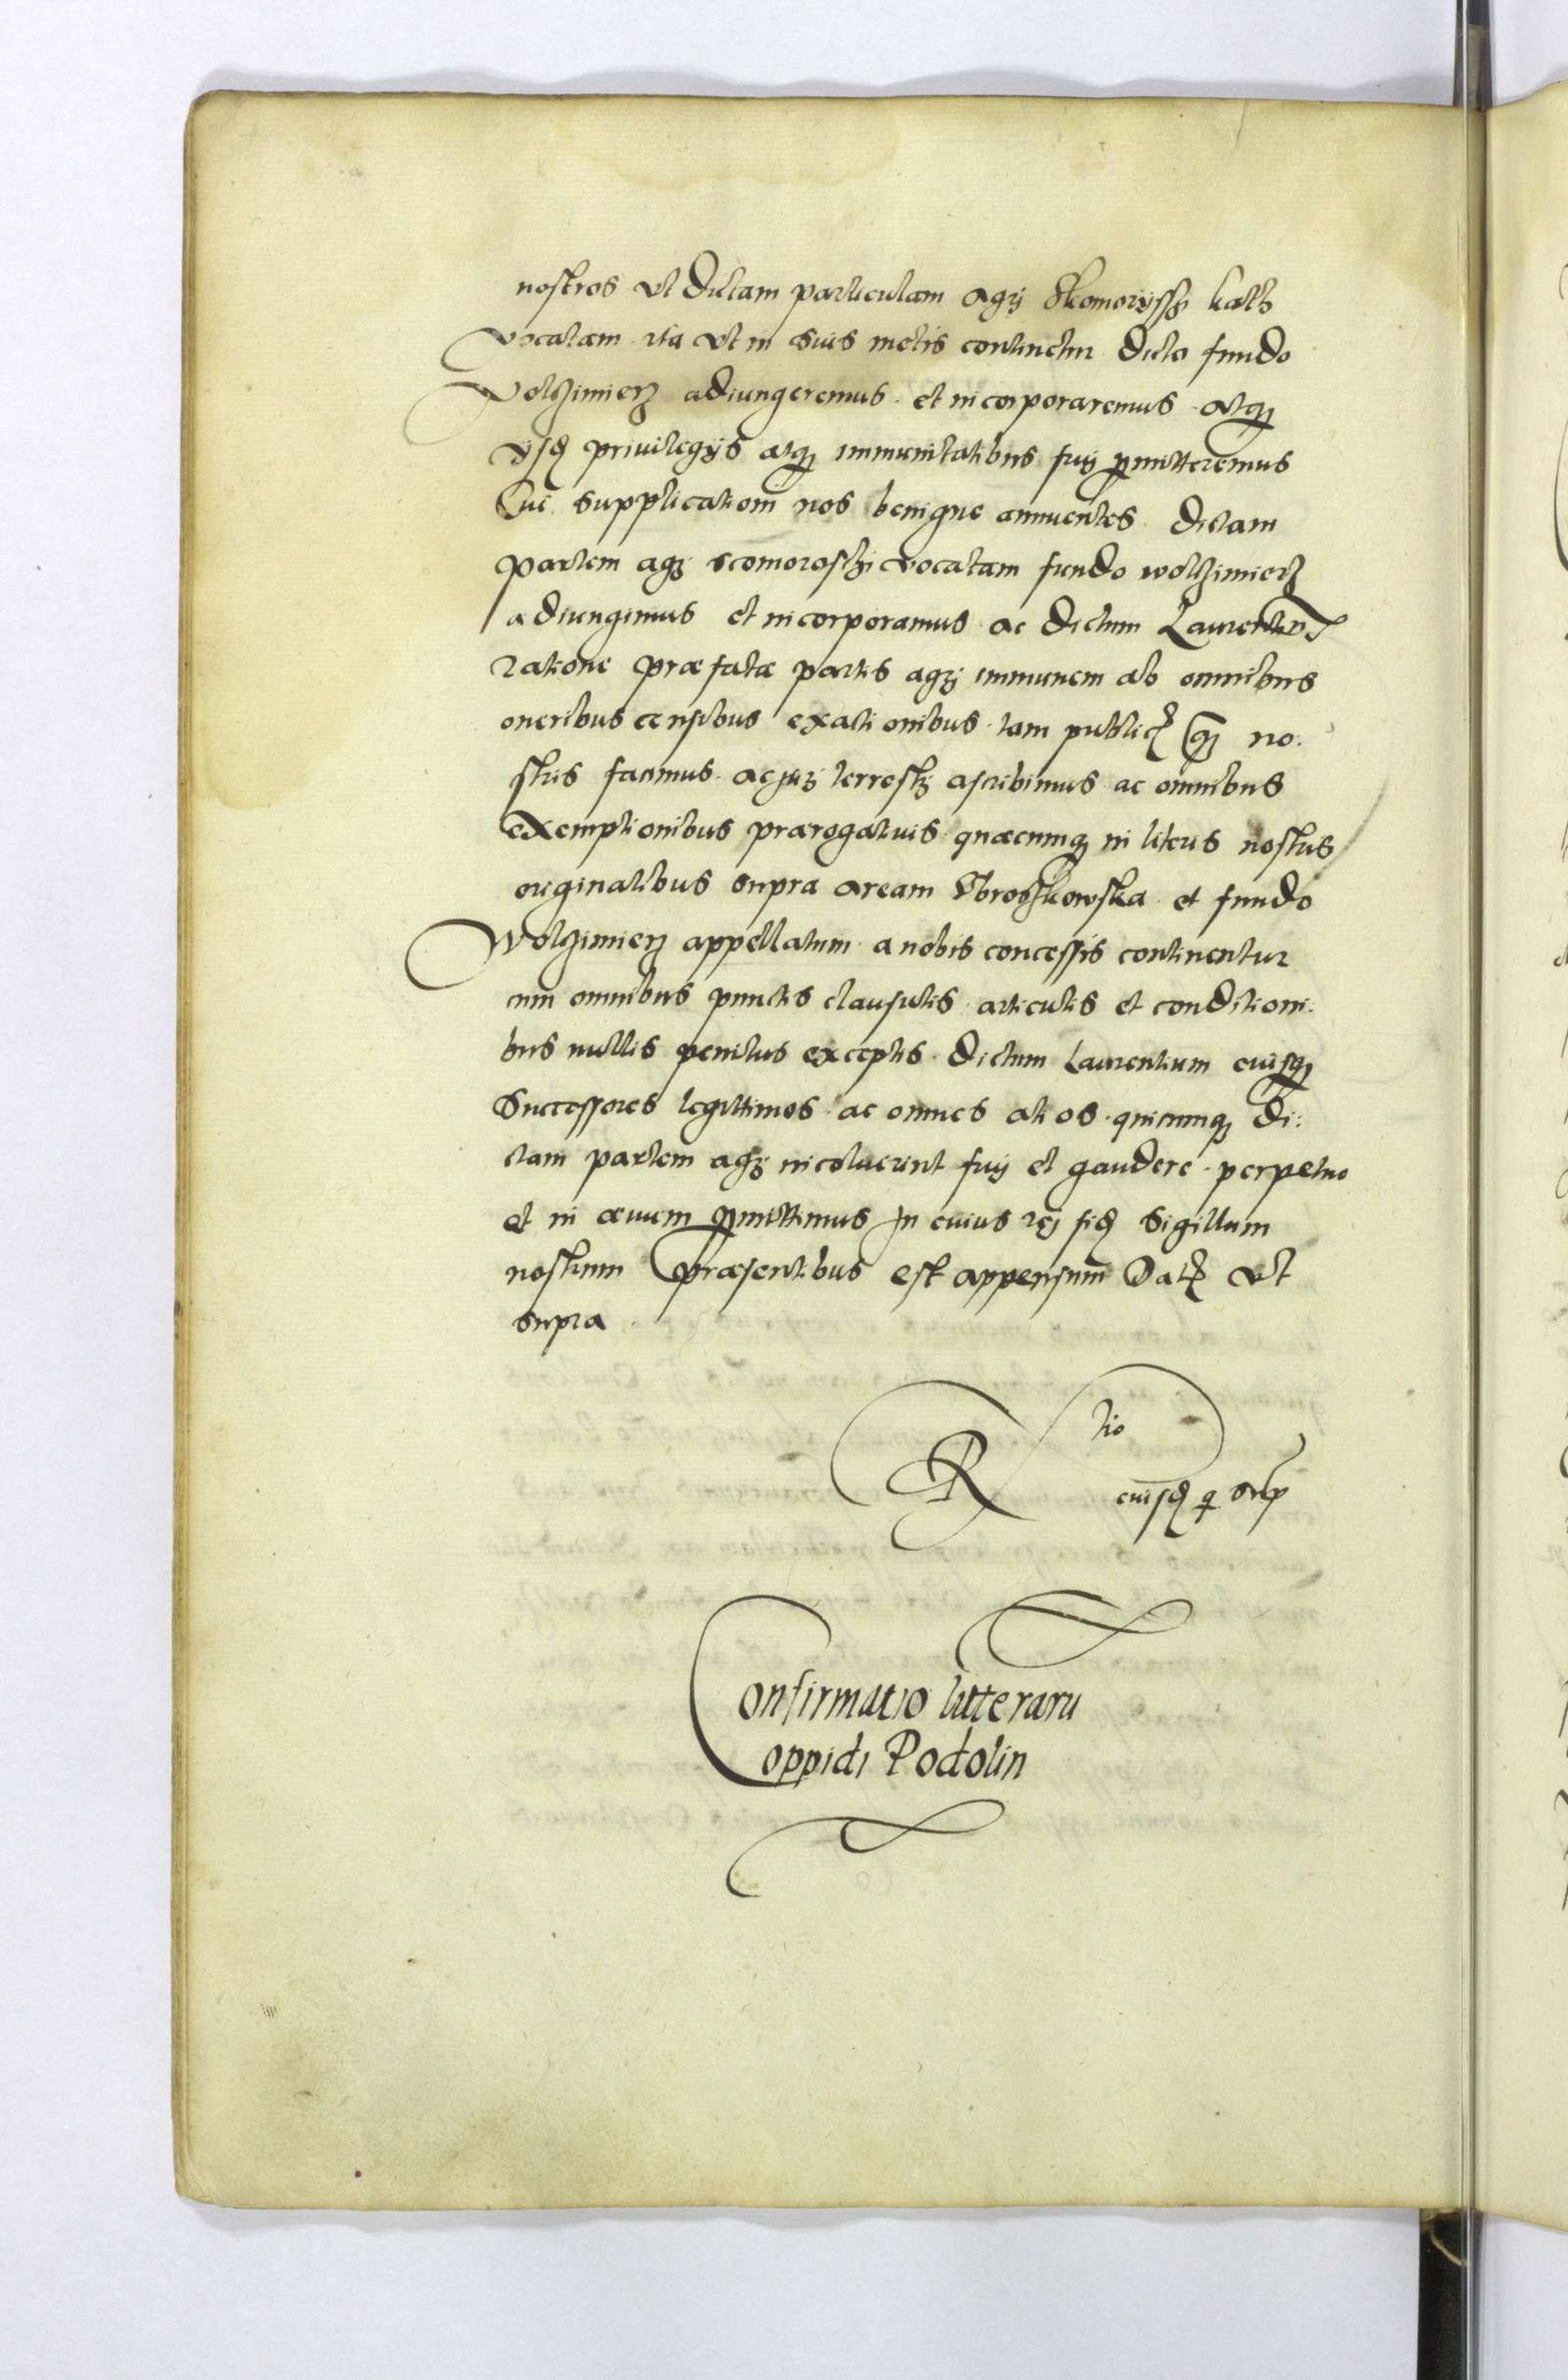 nostros ut dictam particulam agrj Skomorijssz kalth
vocatam ita ut in suis metis continetur dicto fundo
Wolzimierz adiungeremus et incorporaremus atq3
ijsd privilegijs atq3 immunitatibus frij pmitteremus
Cui supplicationi nos benigne annuentes dictam
partem agrj scomoroszki vocatam fundo wolzimierz
adiungimus et incorporamus ac dictum Laurentium
ratione præfatæ partis agrj immunem ab omnibus
oneribus censibus exactionibus tam public q3 no.
stris facimus ac jurj terrestrj ascribimus ac omnibus
exemptionibus prærogativis quæcunq3 in literis nostris
originalibus supra aream et fundo
Wolzimierz appellatum a nobis concessis continentur
cum omnibus punctis clausulis articulis et conditioni.
bus nullis penitus exceptis dictum Laurentium eiusq3
Successores legittimos ac omnes alios quicunq3 di:
ctam partem agrj incoluerint frij et gaudere perpetuo
et in ævum pmittimus In cuius rej fid Sigillum
nostrum præsentibus est appensum Dat ut
supra
R tio
eiusd q sup
Confirmatio litteraru
oppidi Podolin